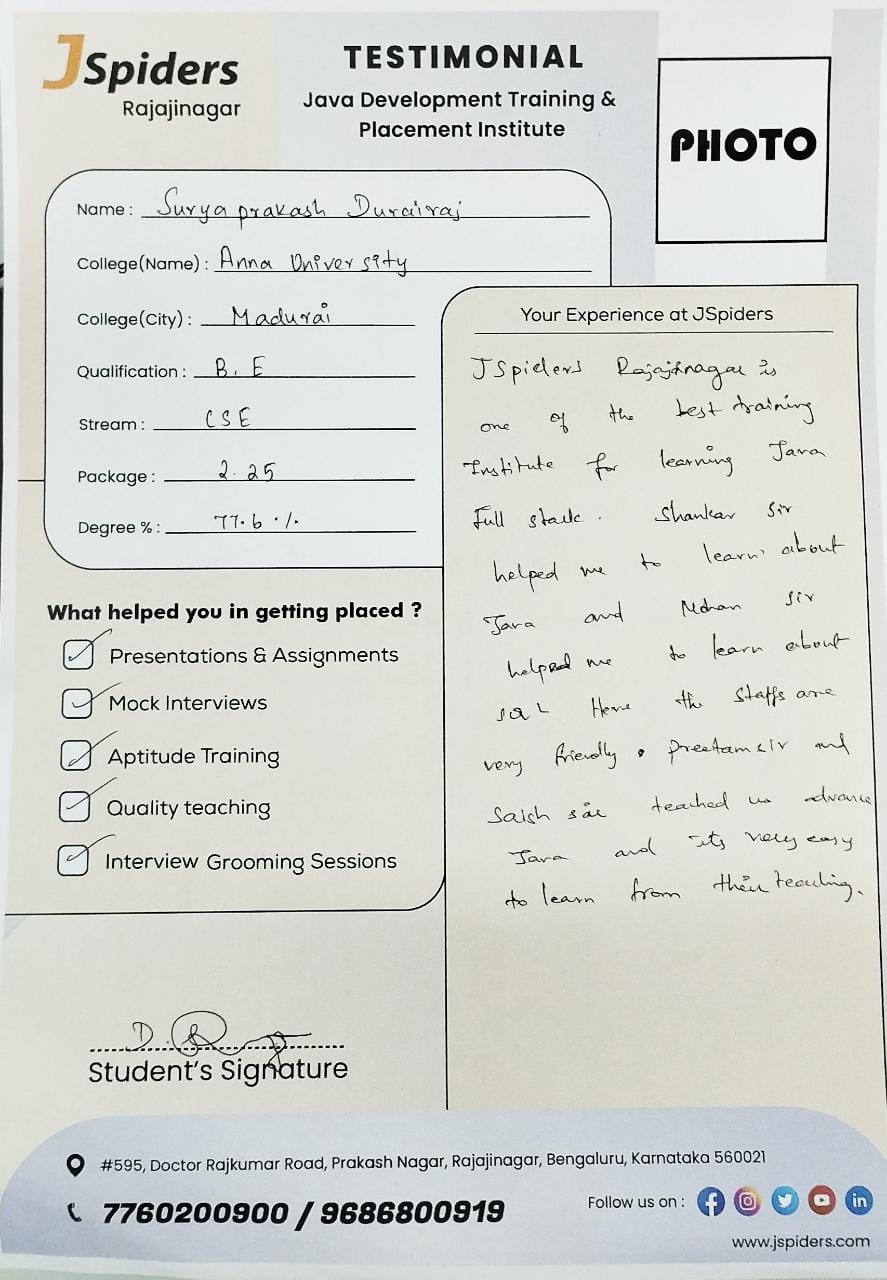 JSpiders
Rajajinagar
TESTIMONIAL
Java Development Training &
Placement Institute
PHOTO
Name : Surya prakash Durairaj
College(Name) : Anna University
College(City) : Madurai
Qualification : B.E
Stream : CSE
Package : 2.25
Degree % : 77.6 %
What helped you in getting placed ?
Presentations & Assignments
Mock Interviews
Aptitude Training
Quality teaching
Interview Grooming Sessions
Your Experience at JSpiders
JSpiders Rajajinagar is
one of the best training
Institute for learning Java
Full stack. Shankar sir
helped me to learn about
Java and Mohan sir
helped me to learn about
SQL Here the staffs are
very friendly. preetam sir and
Saish sir teached us advance
Java and its very easy
to learn from their teaching.
D.
Student's Signature
#595, Doctor Rajkumar Road, Prakash Nagar, Rajajinagar, Bengaluru, Karnataka 560021
7760200900 / 9686800919
Follow us on :
www.jspiders.com